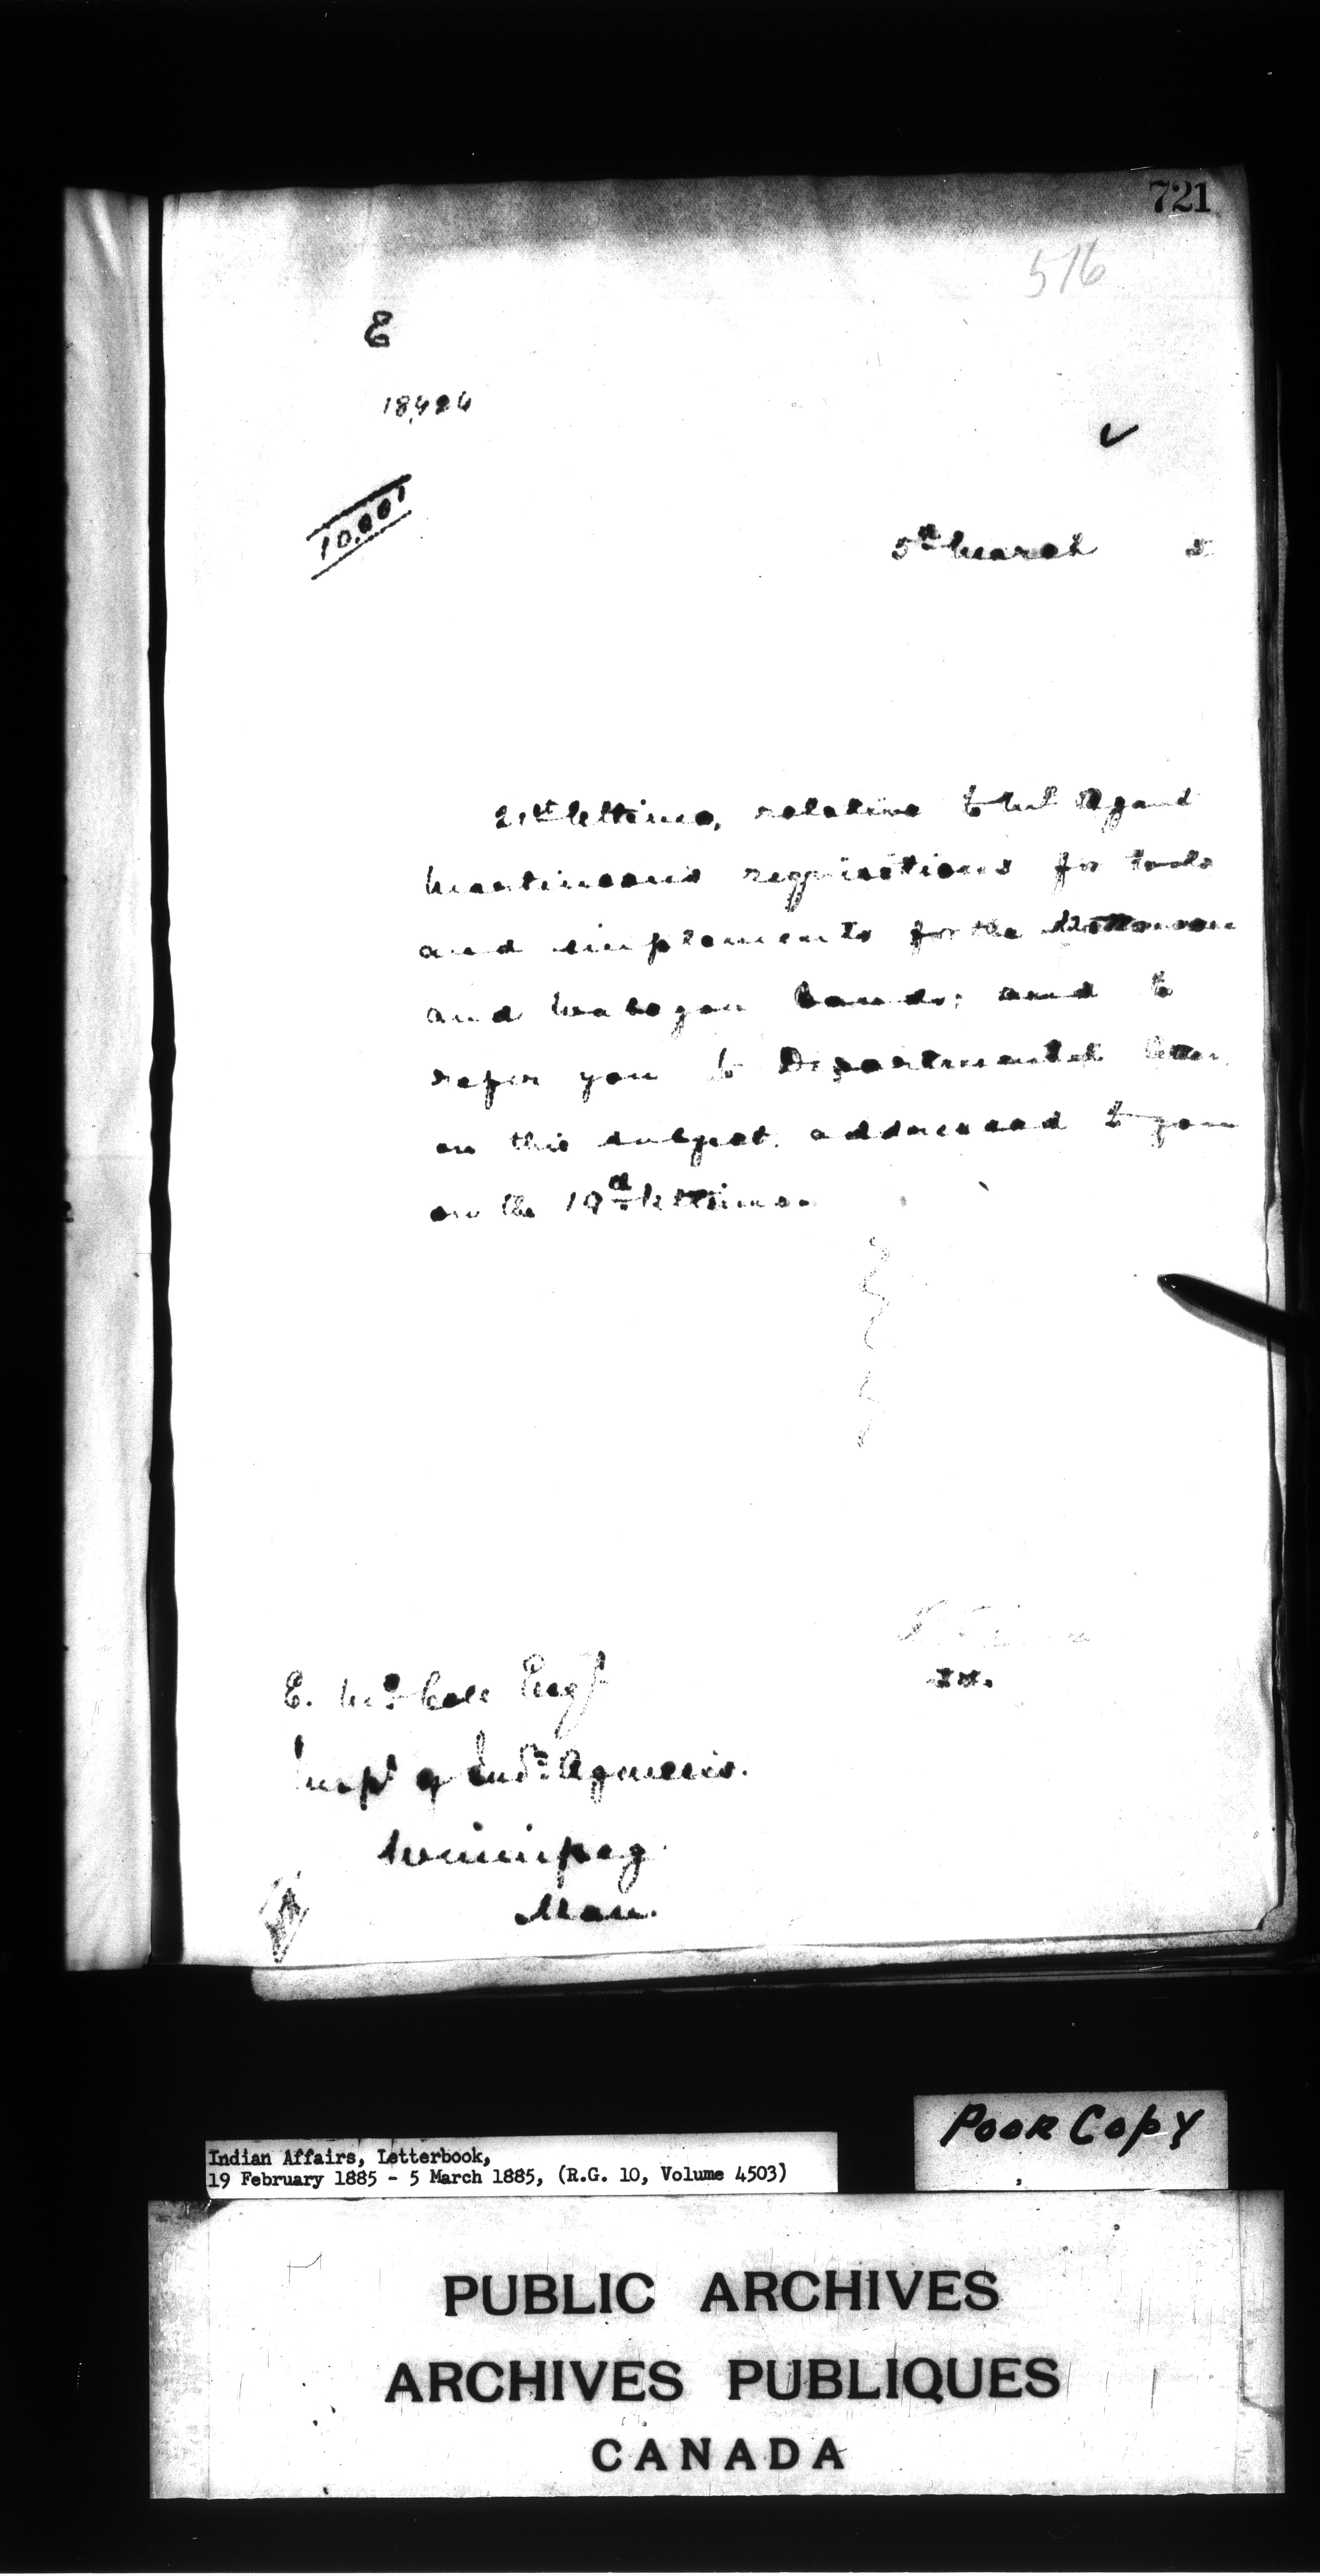 721
516
E
18,424
10.001
5th March 5
21st Ultimo, relative to Agent
Martineau's requisitions for tools
and implements for the
and bands; and to
refer you to Departmental letter
on this subject, addressed to you
on the 19th Ultimo.
E. McColl Esqr
Inspr of Indn Agencies.
Winnipeg
Man.
Indian Affairs, Letterbook,
19 February 1885 - 5 March 1885, (R.G. 10, Volume 4503)
Poor Copy
PUBLIC ARCHIVES
ARCHIVES PUBLIQUES
CANADA